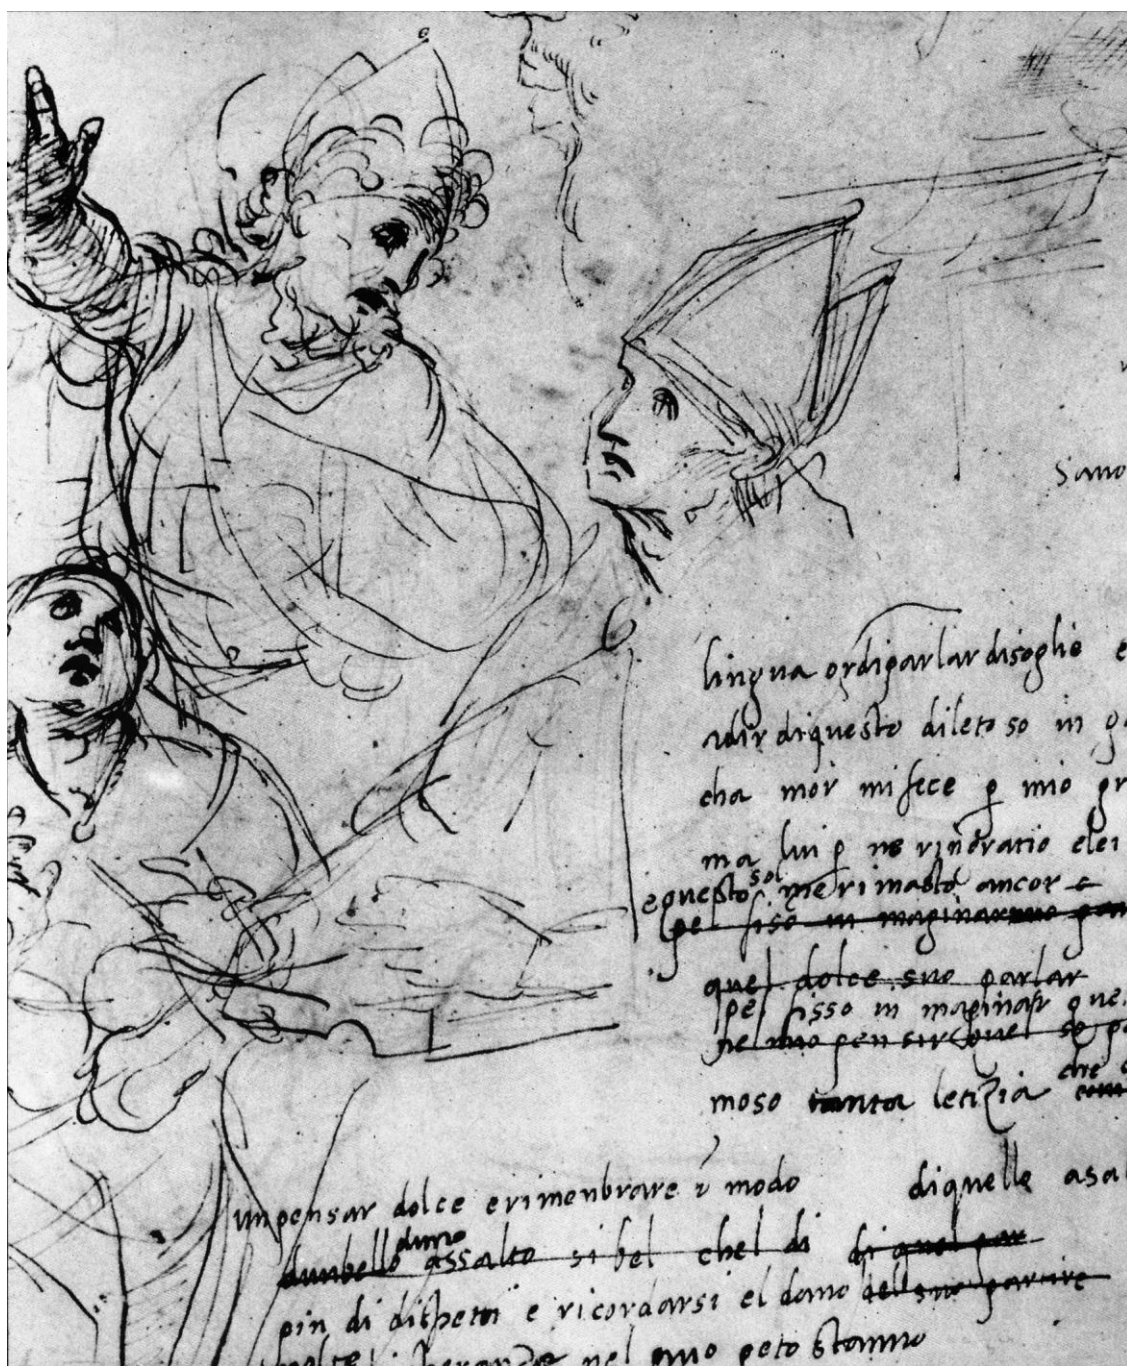 Sano
lingua ordiparlar disoglie e
adir diquesto diletoso in ga
cha mor mi fece p mio gr
ma lui p ne ringratio elei
equesto sol me rimasto ancor
pel fiso in maginar
quel dolce suo parlar
pel fisso in maginar que
ne mio pensir quel so pa
moso tanta letizia che
un pensar dolce erimenbrare i modo diquelle asal
dunbello assalto si bel chel di di quel par
pin di e ricordarsi el dano del suo partire
nel mio peto stanno